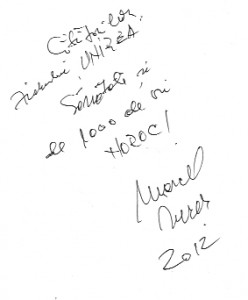 Cititorilor
ziarului UNIREA
Sănătate și
de 1000 de ori
NOROC!
Marcel
2012